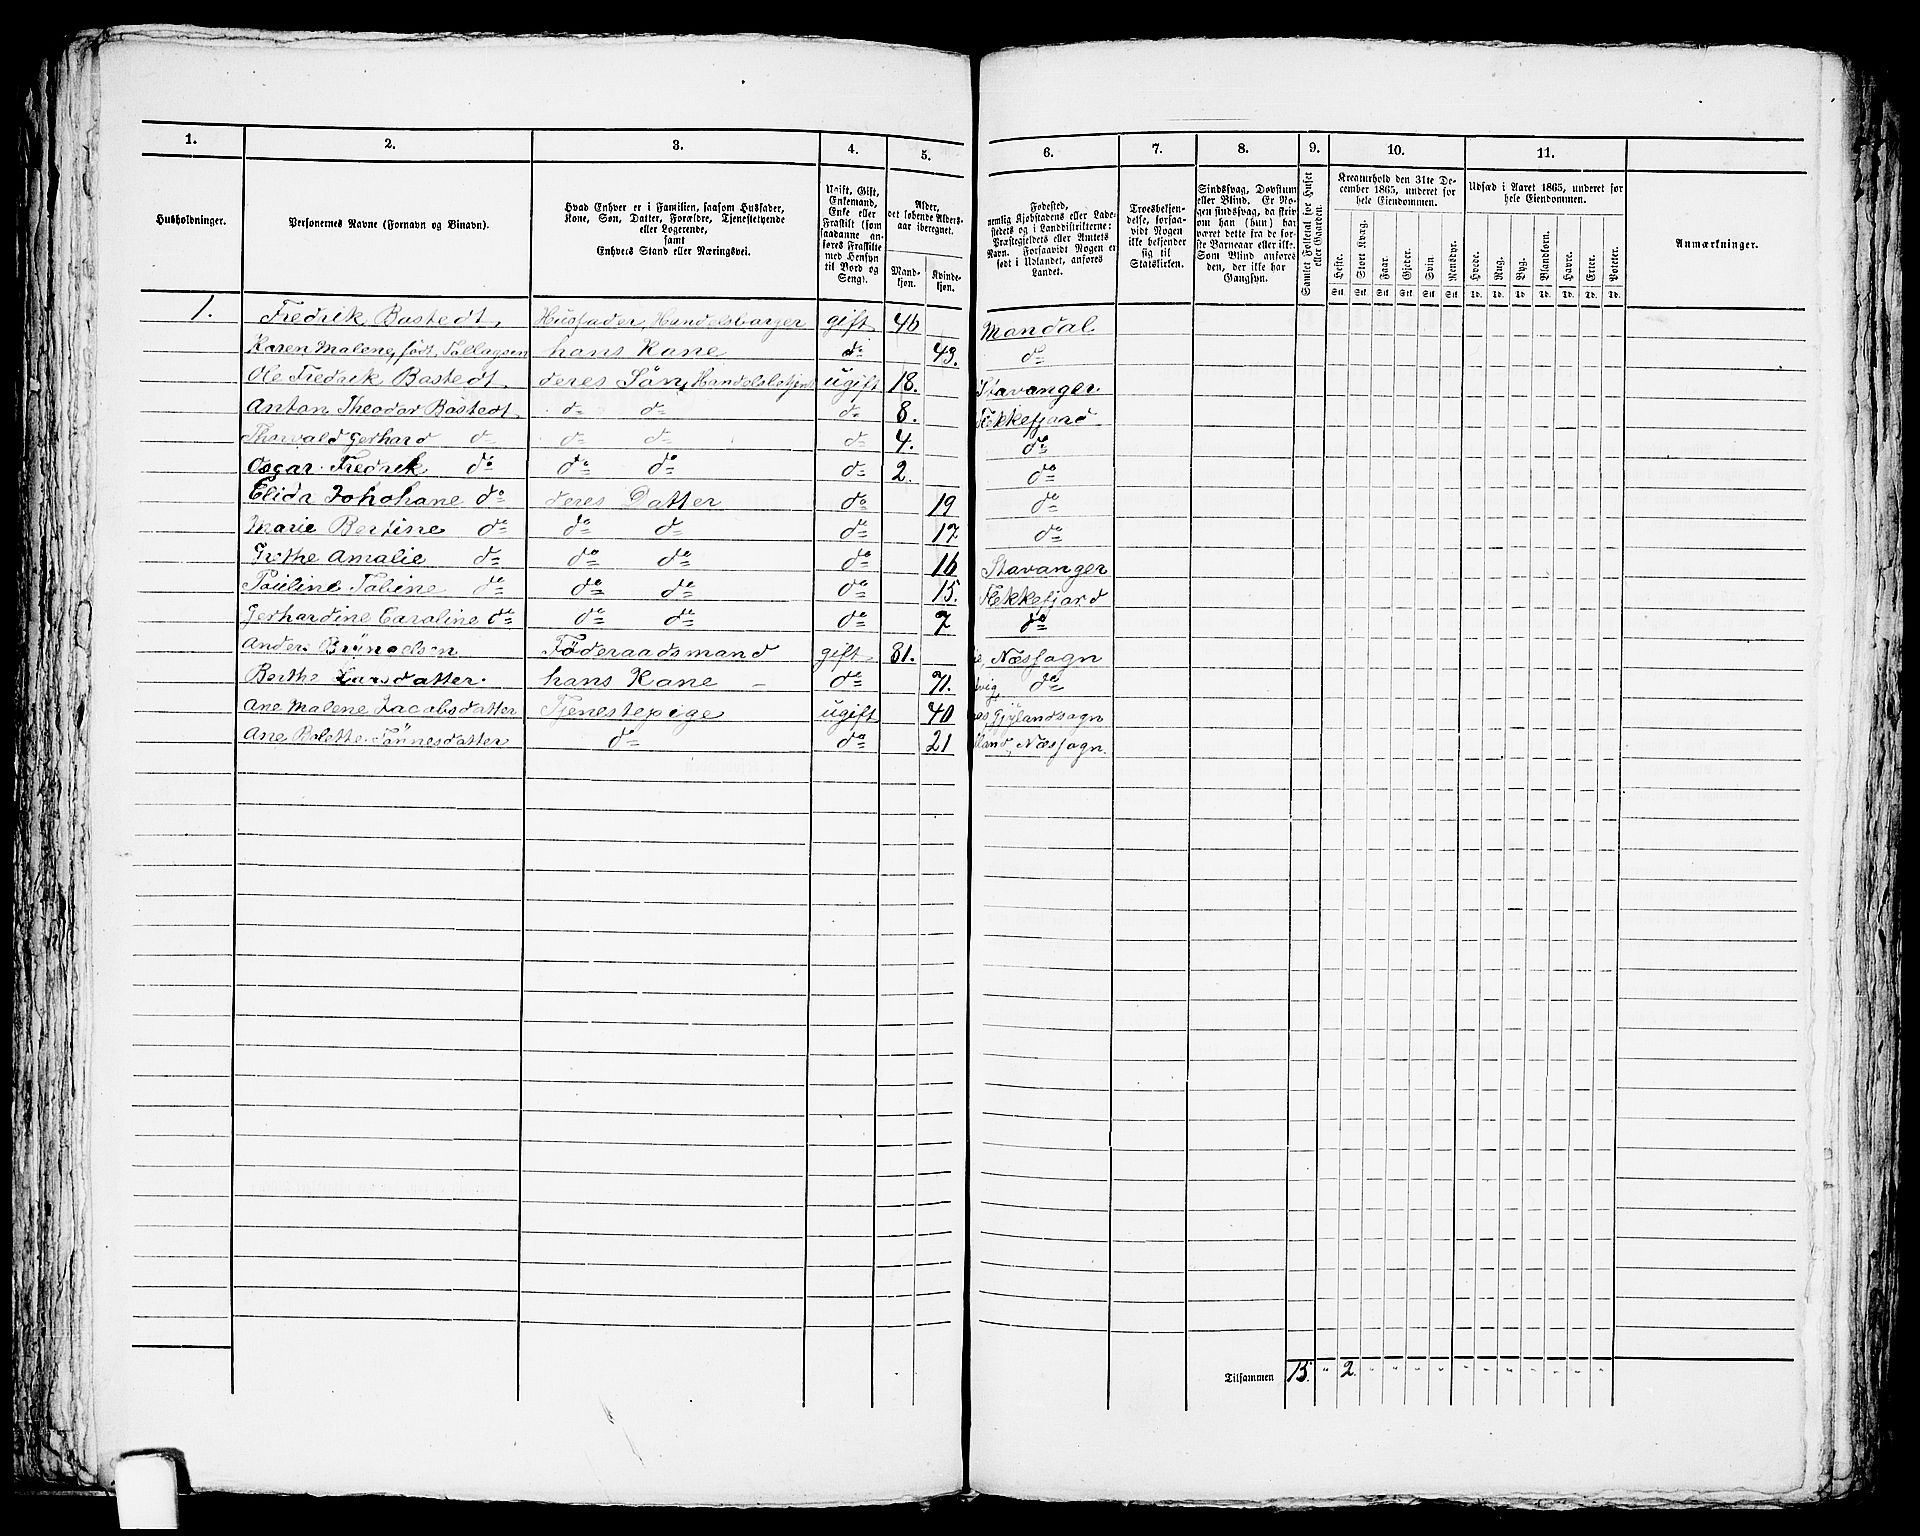 1. 2. 3. 4. 5. 6. 7. 8. 9. 10. 11.
Husholdninger.
Personernes Navne (Fornavn og Binavn).
Hvad Enhver er i Familien, saasom Husfader,
Kone, Søn, Datter, Forældre, Tjenestetyende
eller Logerende,
samt
Enhvers Stand eller Næringsvei.
Ugift, Gift,
Enkemand,
Enke eller
Fraskilt (som
saadanne an-
føres Fraskilte
med Hensyn
til Bord og
Seng).
Alder,
det løbende Alders-
aar iberegnet.
Mand-
kjøn.
Kvinde-
kjøn.
Fødested,
nemlig Kjøbstadens eller Lade-
stedets og i Landdistrikterne:
Præstegjeldets eller Amtets
Navn. Forsaavidt Nogen er
født i Udlandet, anføres
Landet.
Troesbekjen-
delse, forsaa-
vidt Nogen
ikke bekjender
sig til
Statskirken.
Sindssvag, Døvstum
eller Blind. Er No-
gen sindssvag, da skriv
om han (hun) har
været dette fra de før-
ste Barneaar eller ikke.
Som Blind anføres
den, der ikke har
Gangsyn.
Samlet Folketal for Huset
eller Gaarden.
Kreaturhold den 31te De-
cember 1865, underet for
hele Eiendommen.
Heste. Stort Kvæg. Faar. Gjeder. Svin. Rensdyr.
Stk. Stk. Stk. Stk. Stk. Stk.
Udsæd i Aaret 1865, underet for
hele Eiendommen.
Hvede. Rug. Byg. Blandkorn. Havre. Erter. Poteter.
Td. Td. Td. Td. Td. Td. Td.
Anmærkninger.
1. Fredrik Bøstedt, Husfader, Handelsborger gift 46 Mandal
Karen Malene, født Tallagsen hans Kone do 43. do
Ole Fredrik Bøstedt, deres Søn, Handelsbetjent ugift 18. Stavanger
Anton Theodor Bøstedt, do do do 8. Flekkefjord
Thorvald Gerhard do do do do 4. do
Osgar Fredrik do do do do 2. do
Elida Johohane do deres Datter do 19 do
Marie Bertine do do do do 17 do
Grethe Amalie do do do do 16 Stavanger
Pauline Tobine do do do do 15. Flekkefjord
Gerhardine Caroline do do do do 7 do
Anders Føderaadsmand gift 81. Næssogn
Berthe Larsdatter. hans Kone do 71. do
Ane Malene Jacobsdatter Tjenestepige ugift 40 Gjylandsogn
Ane Bolette Tønnesdatter do do 21 Næssogn.
Tilsammen 15. " 2. " " " " " " " " " "